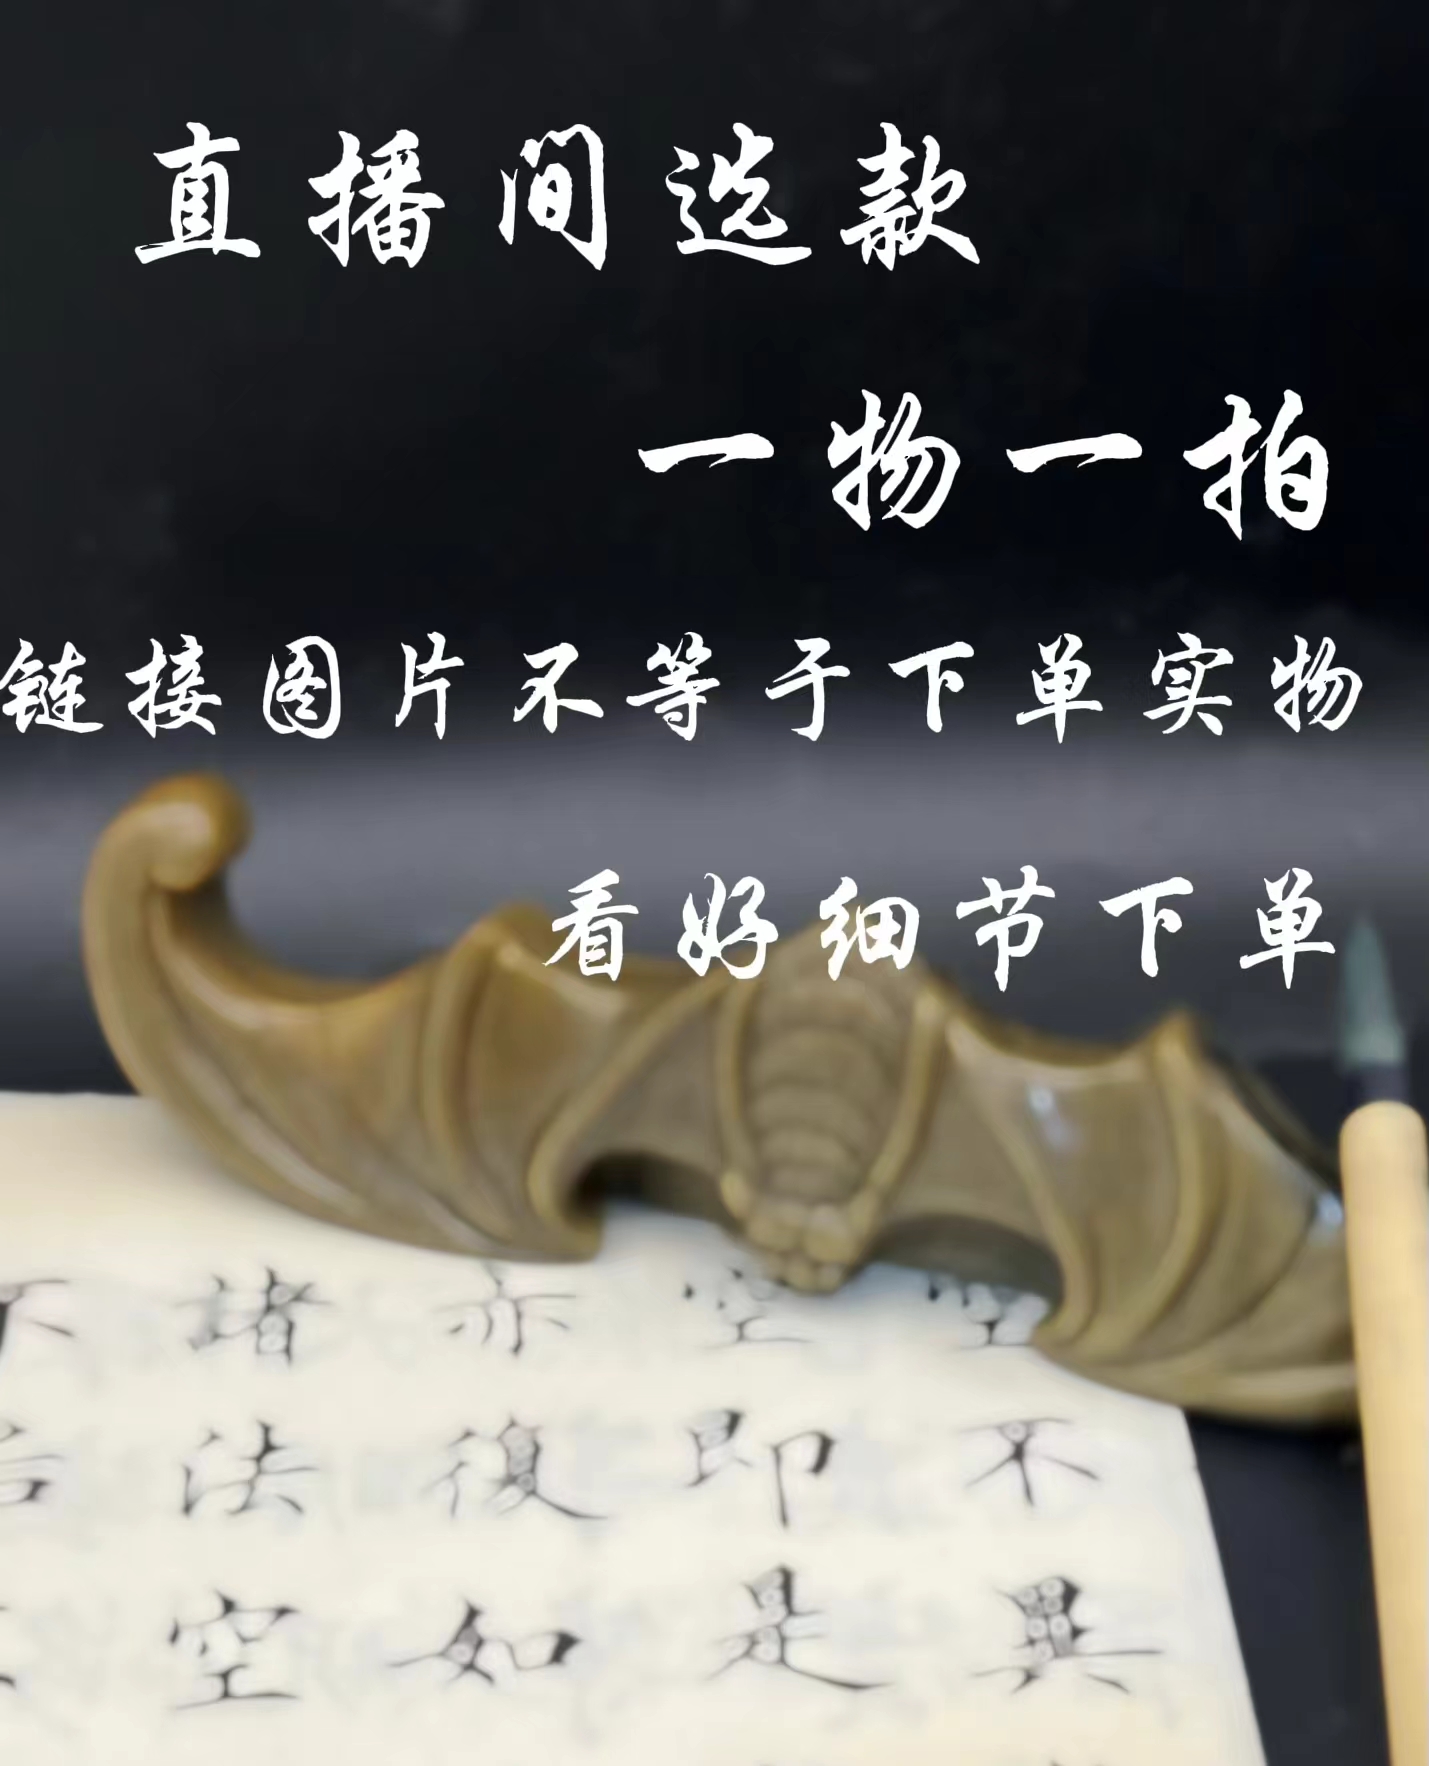 直播间选款
一物一拍
链接图片不等于下单实物
看好细节下单
不諸亦空空
言法復即不
空如是異